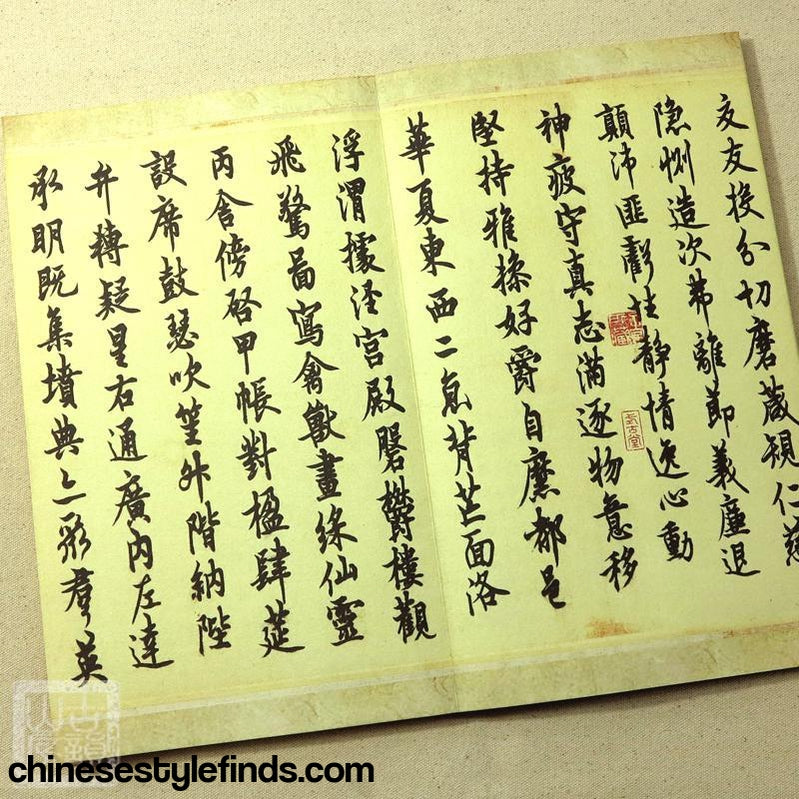 交友投分切磨葴規仁慈
隐惻造次弗離節義廉退
顛沛匪虧性靜情逸心動
神疲守真志滿逐物意移
堅持雅操好爵自縻都邑
華夏東西二京背芒面洛
浮渭據涇宮殿磐欝樓觀
飛驚啚寫禽獸畫綵仙靈
丙舍傍啓甲帳對楹肆筵
設席鼓瑟吹笙升階納陛
弁轉疑星右通廣內左達
承明既集墳典亦聚羣英
chinesestylefinds.com